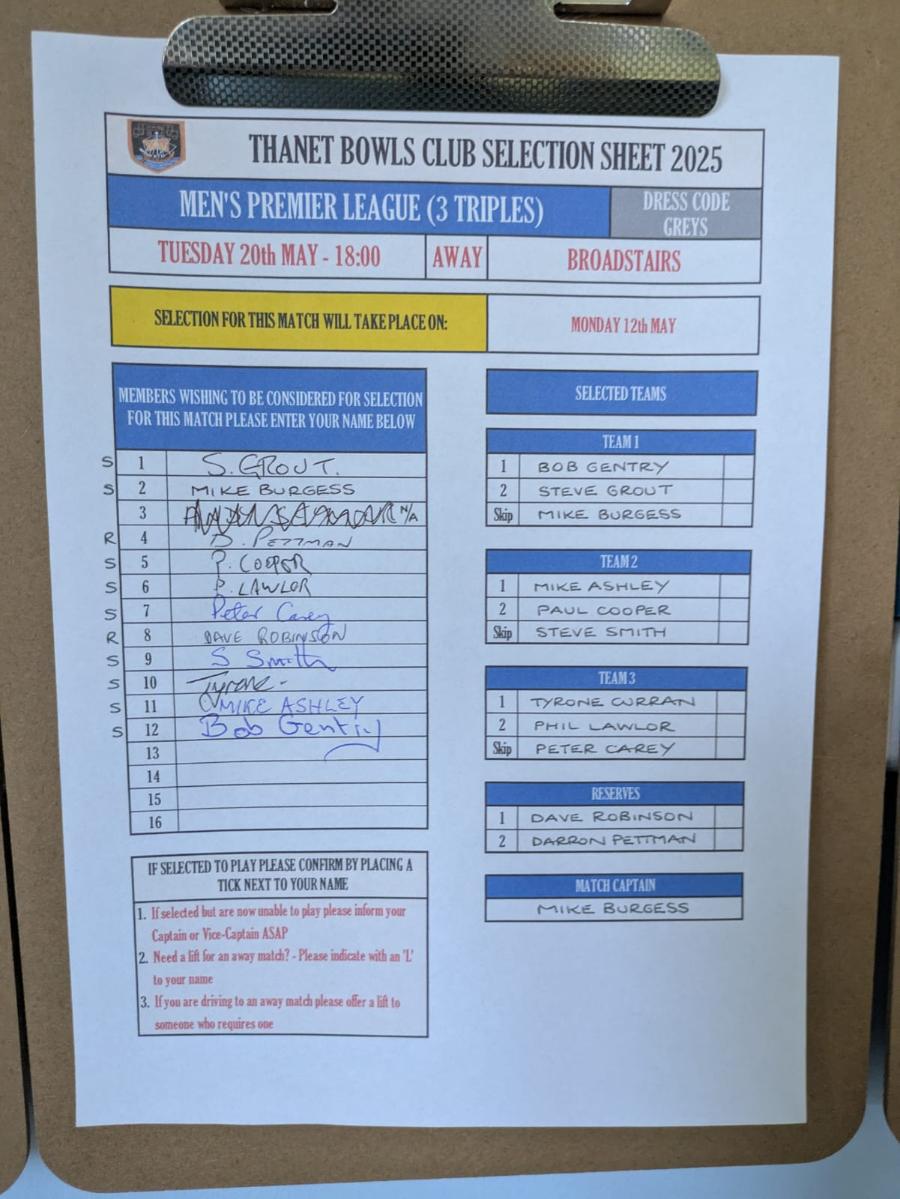 THANET BOWLS CLUB SELECTION SHEET 2025
MEN'S PREMIER LEAGUE (3 TRIPLES)
DRESS CODE
GREYS
TUESDAY 20th MAY - 18:00 AWAY BROADSTAIRS
SELECTION FOR THIS MATCH WILL TAKE PLACE ON: MONDAY 12th MAY
MEMBERS WISHING TO BE CONSIDERED FOR SELECTION
FOR THIS MATCH PLEASE ENTER YOUR NAME BELOW
S 1 S. GROUT.
S 2 MIKE BURGESS
3 N/A
R 4 D. PETTMAN
S 5 P. COOPER
S 6 P. LAWLOR
S 7 Peter Carey
R 8 DAVE ROBINSON
S 9 S Smith
S 10 Tyrone -
S 11 MIKE ASHLEY
S 12 Bob Gentry
13
14
15
16
IF SELECTED TO PLAY PLEASE CONFIRM BY PLACING A
TICK NEXT TO YOUR NAME
1. If selected but are now unable to play please inform your
Captain or Vice-Captain ASAP
2. Need a lift for an away match? - Please indicate with an 'L'
to your name
3. If you are driving to an away match please offer a lift to
someone who requires one
SELECTED TEAMS
TEAM 1
1 BOB GENTRY
2 STEVE GROUT
Skip MIKE BURGESS
TEAM 2
1 MIKE ASHLEY
2 PAUL COOPER
Skip STEVE SMITH
TEAM 3
1 TYRONE CURRAN
2 PHIL LAWLOR
Skip PETER CAREY
RESERVES
1 DAVE ROBINSON
2 DARRON PETTMAN
MATCH CAPTAIN
MIKE BURGESS